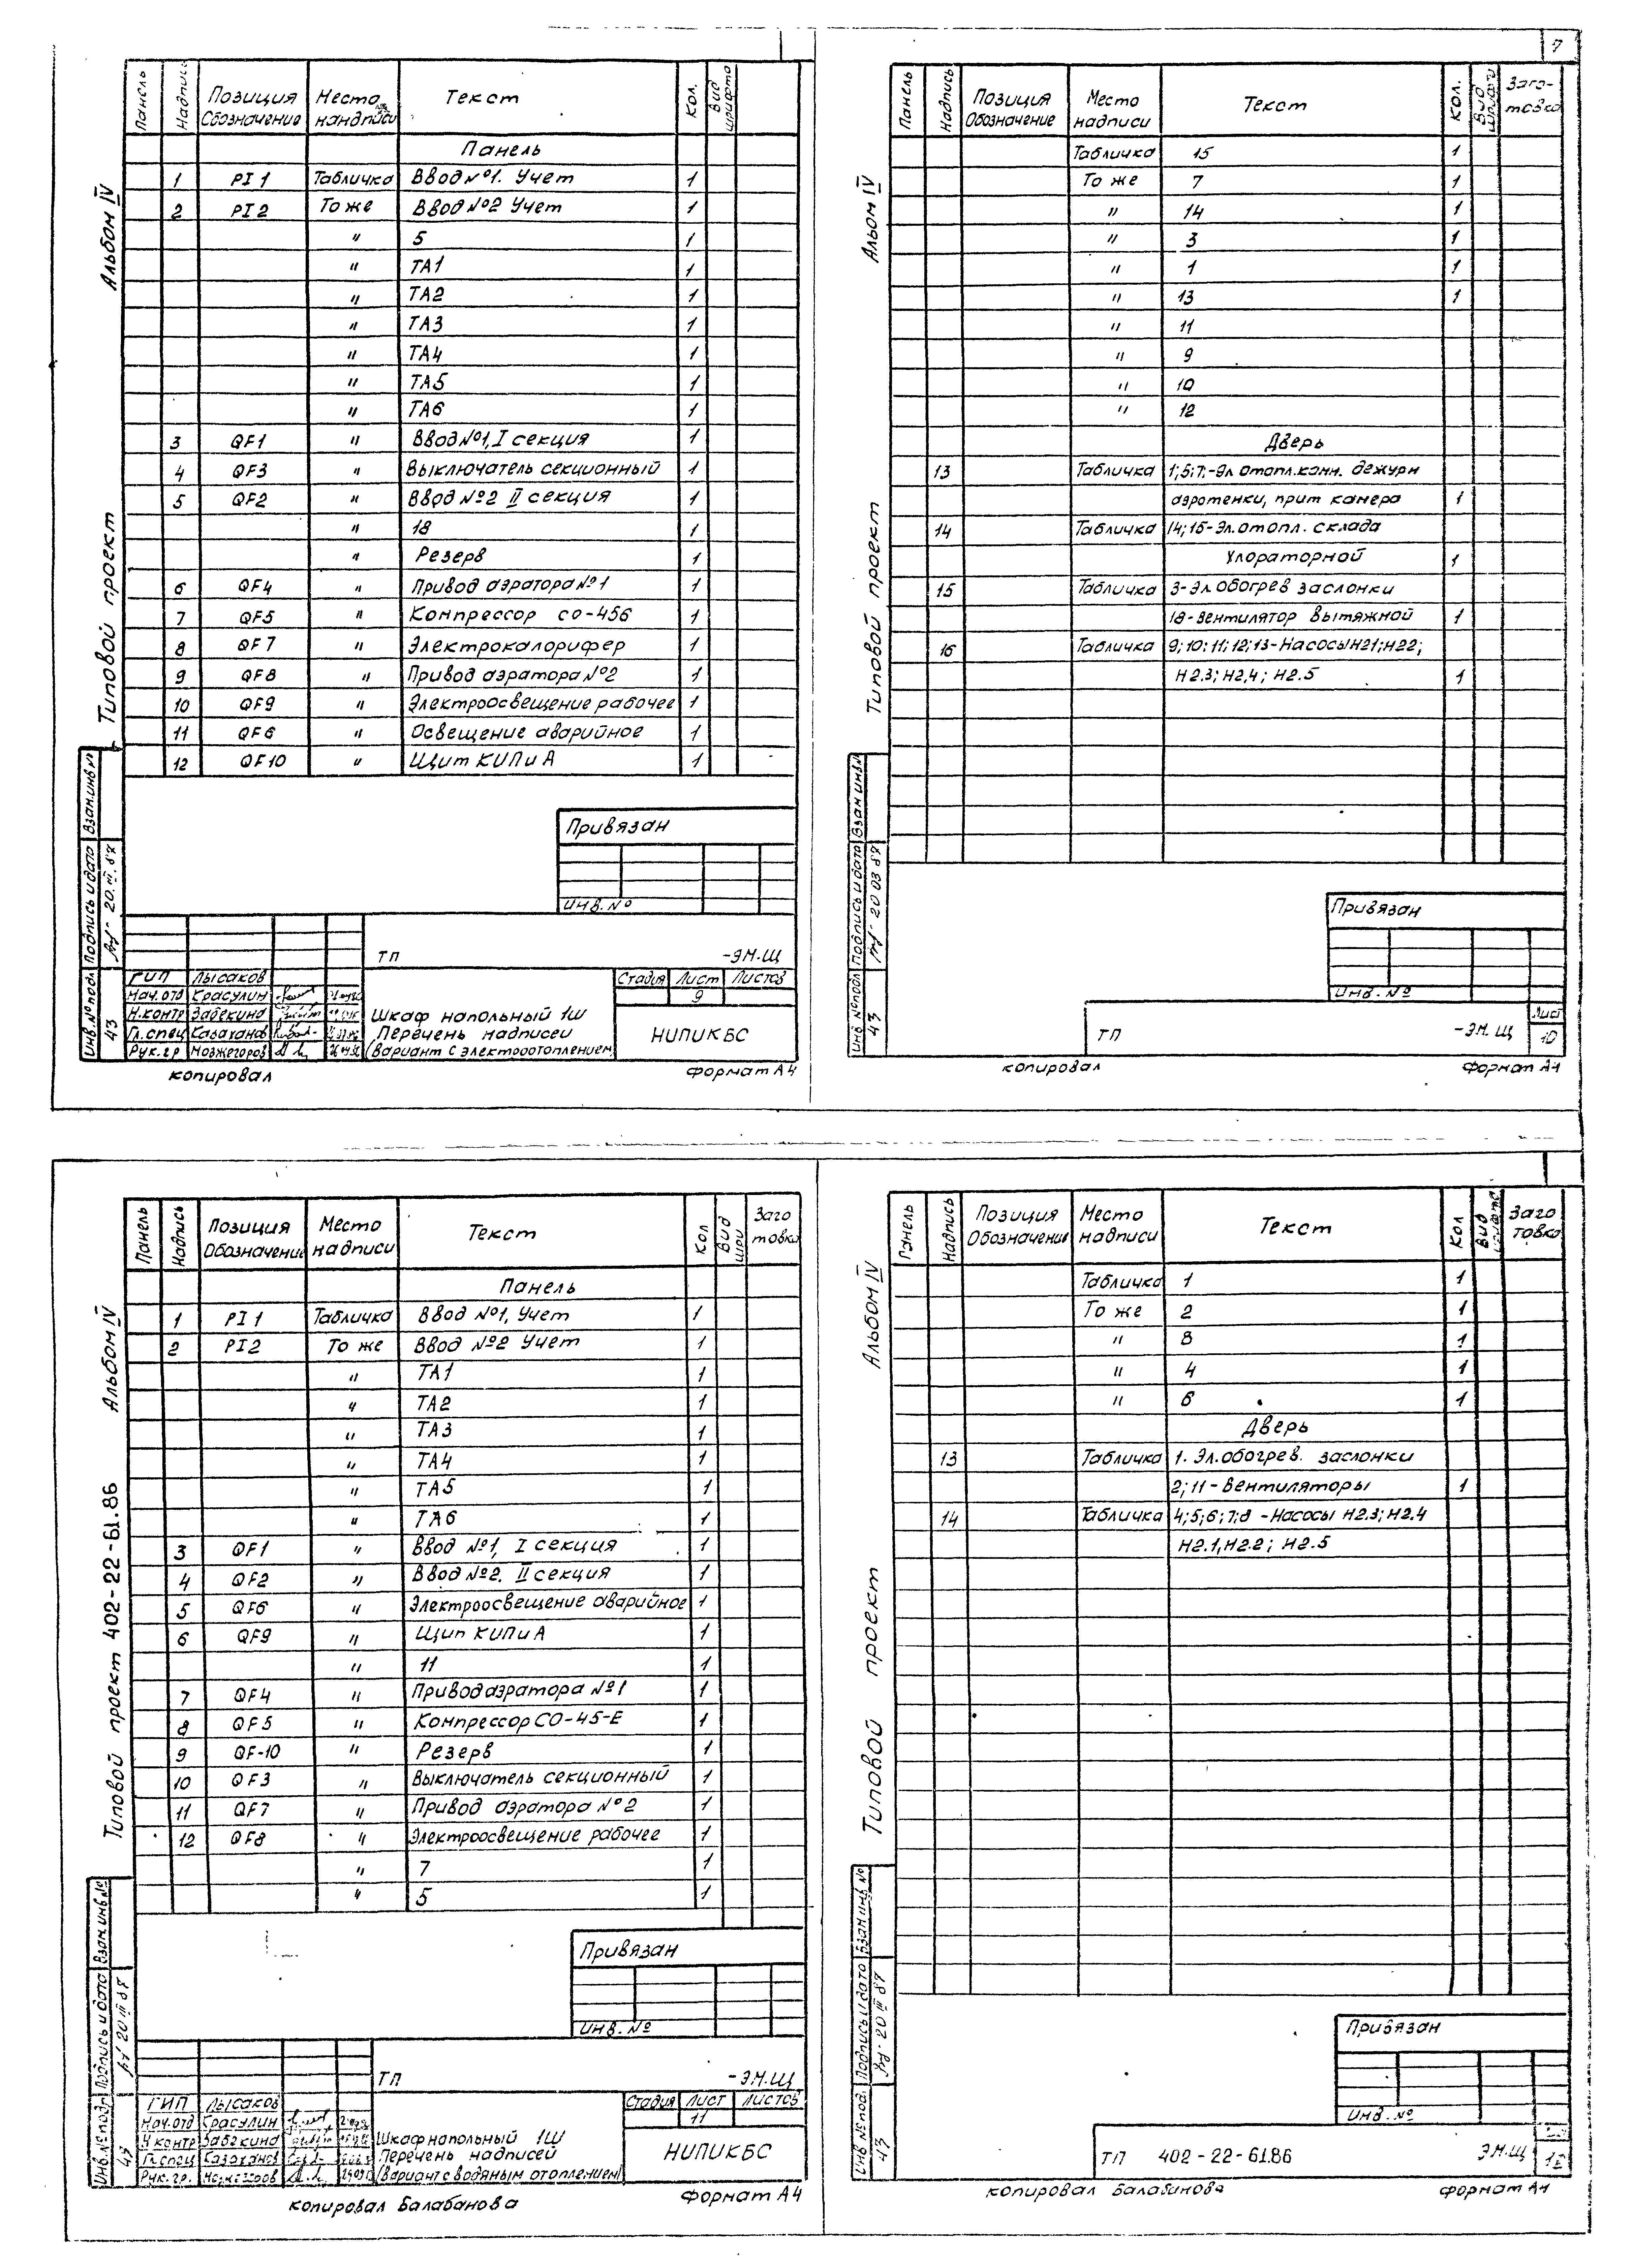 7
Альбом IV
Типовой проект
Панель Надпись Позиция Обозначение Место нандписи Текст Кол. Вид шрифта
Панель
1 PI1 Табличка Ввод №1. Учет 1
2 PI2 То же Ввод №2 Учет 1
" 5 1
" ТА1 1
" ТА2 1
" ТА3 1
" ТА4 1
" ТА5 1
" ТА6 1
3 QF1 " Ввод №1, I секция 1
4 QF3 " Выключатель секционный 1
5 QF2 " Ввод №2 II секция 1
" 18 1
" Резерв 1
6 QF4 " Привод аэратора №1 1
7 QF5 " Компрессор СО-45б 1
8 QF7 " Электрокалорифер 1
9 QF8 " Привод аэратора №2 1
10 QF9 " Электроосвещение рабочее 1
11 QF6 " Освещение аварийное 1
12 QF10 " Щит КИПиА 1
Привязан
Инв. №
ТП -ЭМ.Щ
ГИП Лысаков
Нач.отд Красулин
Н.контр Забекина
Гл.спец Казаханов
Рук.гр
Стадия Лист Листов
9
Шкаф напольный 1Ш
Перечень надписей
(Вариант с электроотоплением)
НИПИКБС
Инв.№ подл Подпись и дата Взам.инв №
43 20.III.87
копировал формат А4
Альбом IV
Типовой проект
Панель Надпись Позиция Обозначение Место надписи Текст Кол. Вид шрифта Заго-товка
Табличка 15 1
То же 7 1
" 14 1
" 3 1
" 1 1
" 13 1
" 11
" 9
" 10
" 12
Дверь
13 Табличка 1;5;7;-Эл отопл.комн. дежурн
аэротенки, прит камера 1
14 Табличка 14;15-Эл.отопл. склада
Хлораторной 1
15 Табличка 3-Эл.обогрев заслонки
18-вентилятор вытяжной 1
16 Табличка 9;10;11;12;13-НасосыН21;Н22;
Н2.3; Н2,4; Н2.5 1
Привязан
Инв. №
ТП -ЭМ.Щ Лист 10
Инв №подл Подпись и дата Взам инв.№
43 20 03 87
копировал формат А4
Альбом IV
Типовой проект 402-22-61.86
Панель Надпись Позиция Обозначение Место надписи Текст Кол Вид шри Заго товка
Панель
1 PI1 Табличка Ввод №1, Учет 1
2 PI2 То же Ввод №2 Учет 1
" ТА1 1
" ТА2 1
" ТА3 1
" ТА4 1
" ТА5 1
" ТА6 1
3 QF1 " Ввод №1, I секция 1
4 QF2 " Ввод №2. II секция 1
5 QF6 " Электроосвещение аварийное 1
6 QF9 " Щит КИПиА 1
" 11 1
7 QF4 " Привод аэратора №1 1
8 QF5 " Компрессор СО-45-Е 1
9 QF-10 " Резерв 1
10 QF3 " Выключатель секционный 1
11 QF7 " Привод аэратора №2 1
12 QF8 " Электроосвещение рабочее 1
" 7 1
" 5 1
Привязан
Инв. №
ТП -ЭМ.Щ
ГИП Лысаков
Нач.отд Красулин
Н контр Забекина
Гл.спец Казаханов
Рук.гр.
Стадия Лист Листов
11
Шкаф напольный 1Ш
Перечень надписей
(Вариант с водяным отоплением)
НИПИКБС
Инв.№ подл Подпись и дата Взам.инв №
43 20 III 87
копировал Балабанова формат А4
Альбом IV
Типовой проект
Панель Надпись Позиция Обозначение Место надписи Текст Кол Вид шрифта Заго товка
Табличка 1 1
То же 2 1
" 8 1
" 4 1
" 6 1
Дверь
13 Табличка 1. Эл.обогрев. заслонки
2;11-Вентиляторы 1
14 Табличка 4;5;6;7;8 -Насосы Н2.3; Н2.4
Н2.1,Н2.2; Н2.5
Привязан
Инв. №
ТП 402-22-61.86 ЭМ.Щ
Инв №под. Подпись и дата Взам инв №
43 20 III 87
копировал Балабанова формат А4